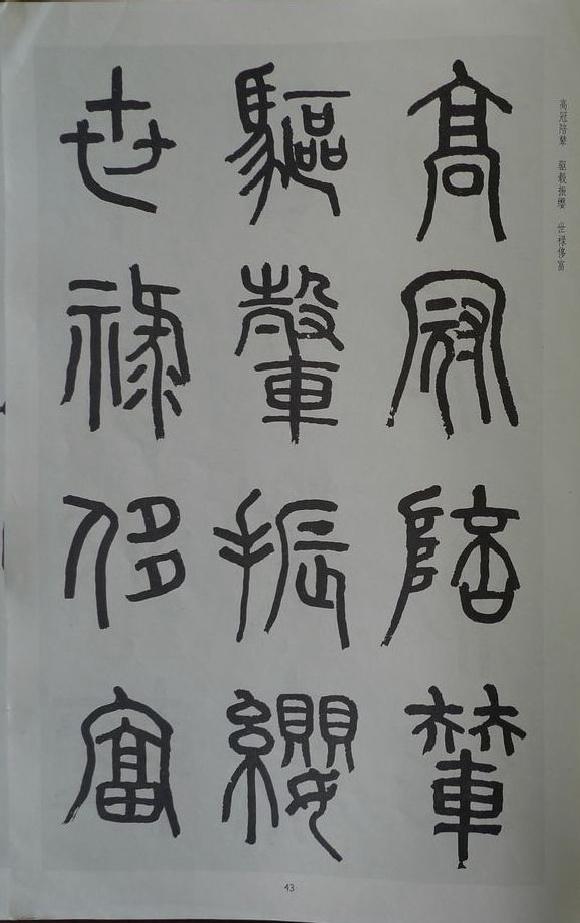 高冠陪輦
驅轂振纓
世祿侈富
高冠陪辇 驱毂振缨 世禄侈富
43